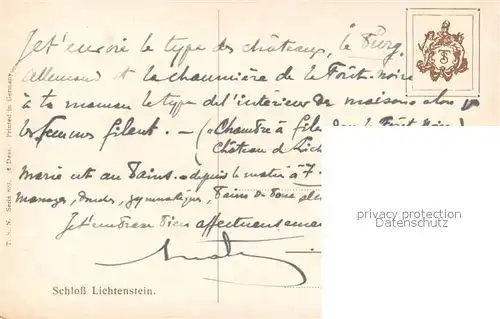 Je t'envoie le type des châteaux, le Burg
allemand et la chaumière de la Forêt-noire
à ta maman le type de l'intérieur de maisons alors
les femmes filent. — (Chambre à filer dans la Forêt Noire)
Château de Lich
Marie est au Bains. depuis le matin à 7
massages, douches, gymnastique, Bains de boue
Je t'embrasse bien affectueusement
Schloß Lichtenstein.
T. S. N. Serie 802. Printed in Germany
TS
privacy protection
Datenschutz